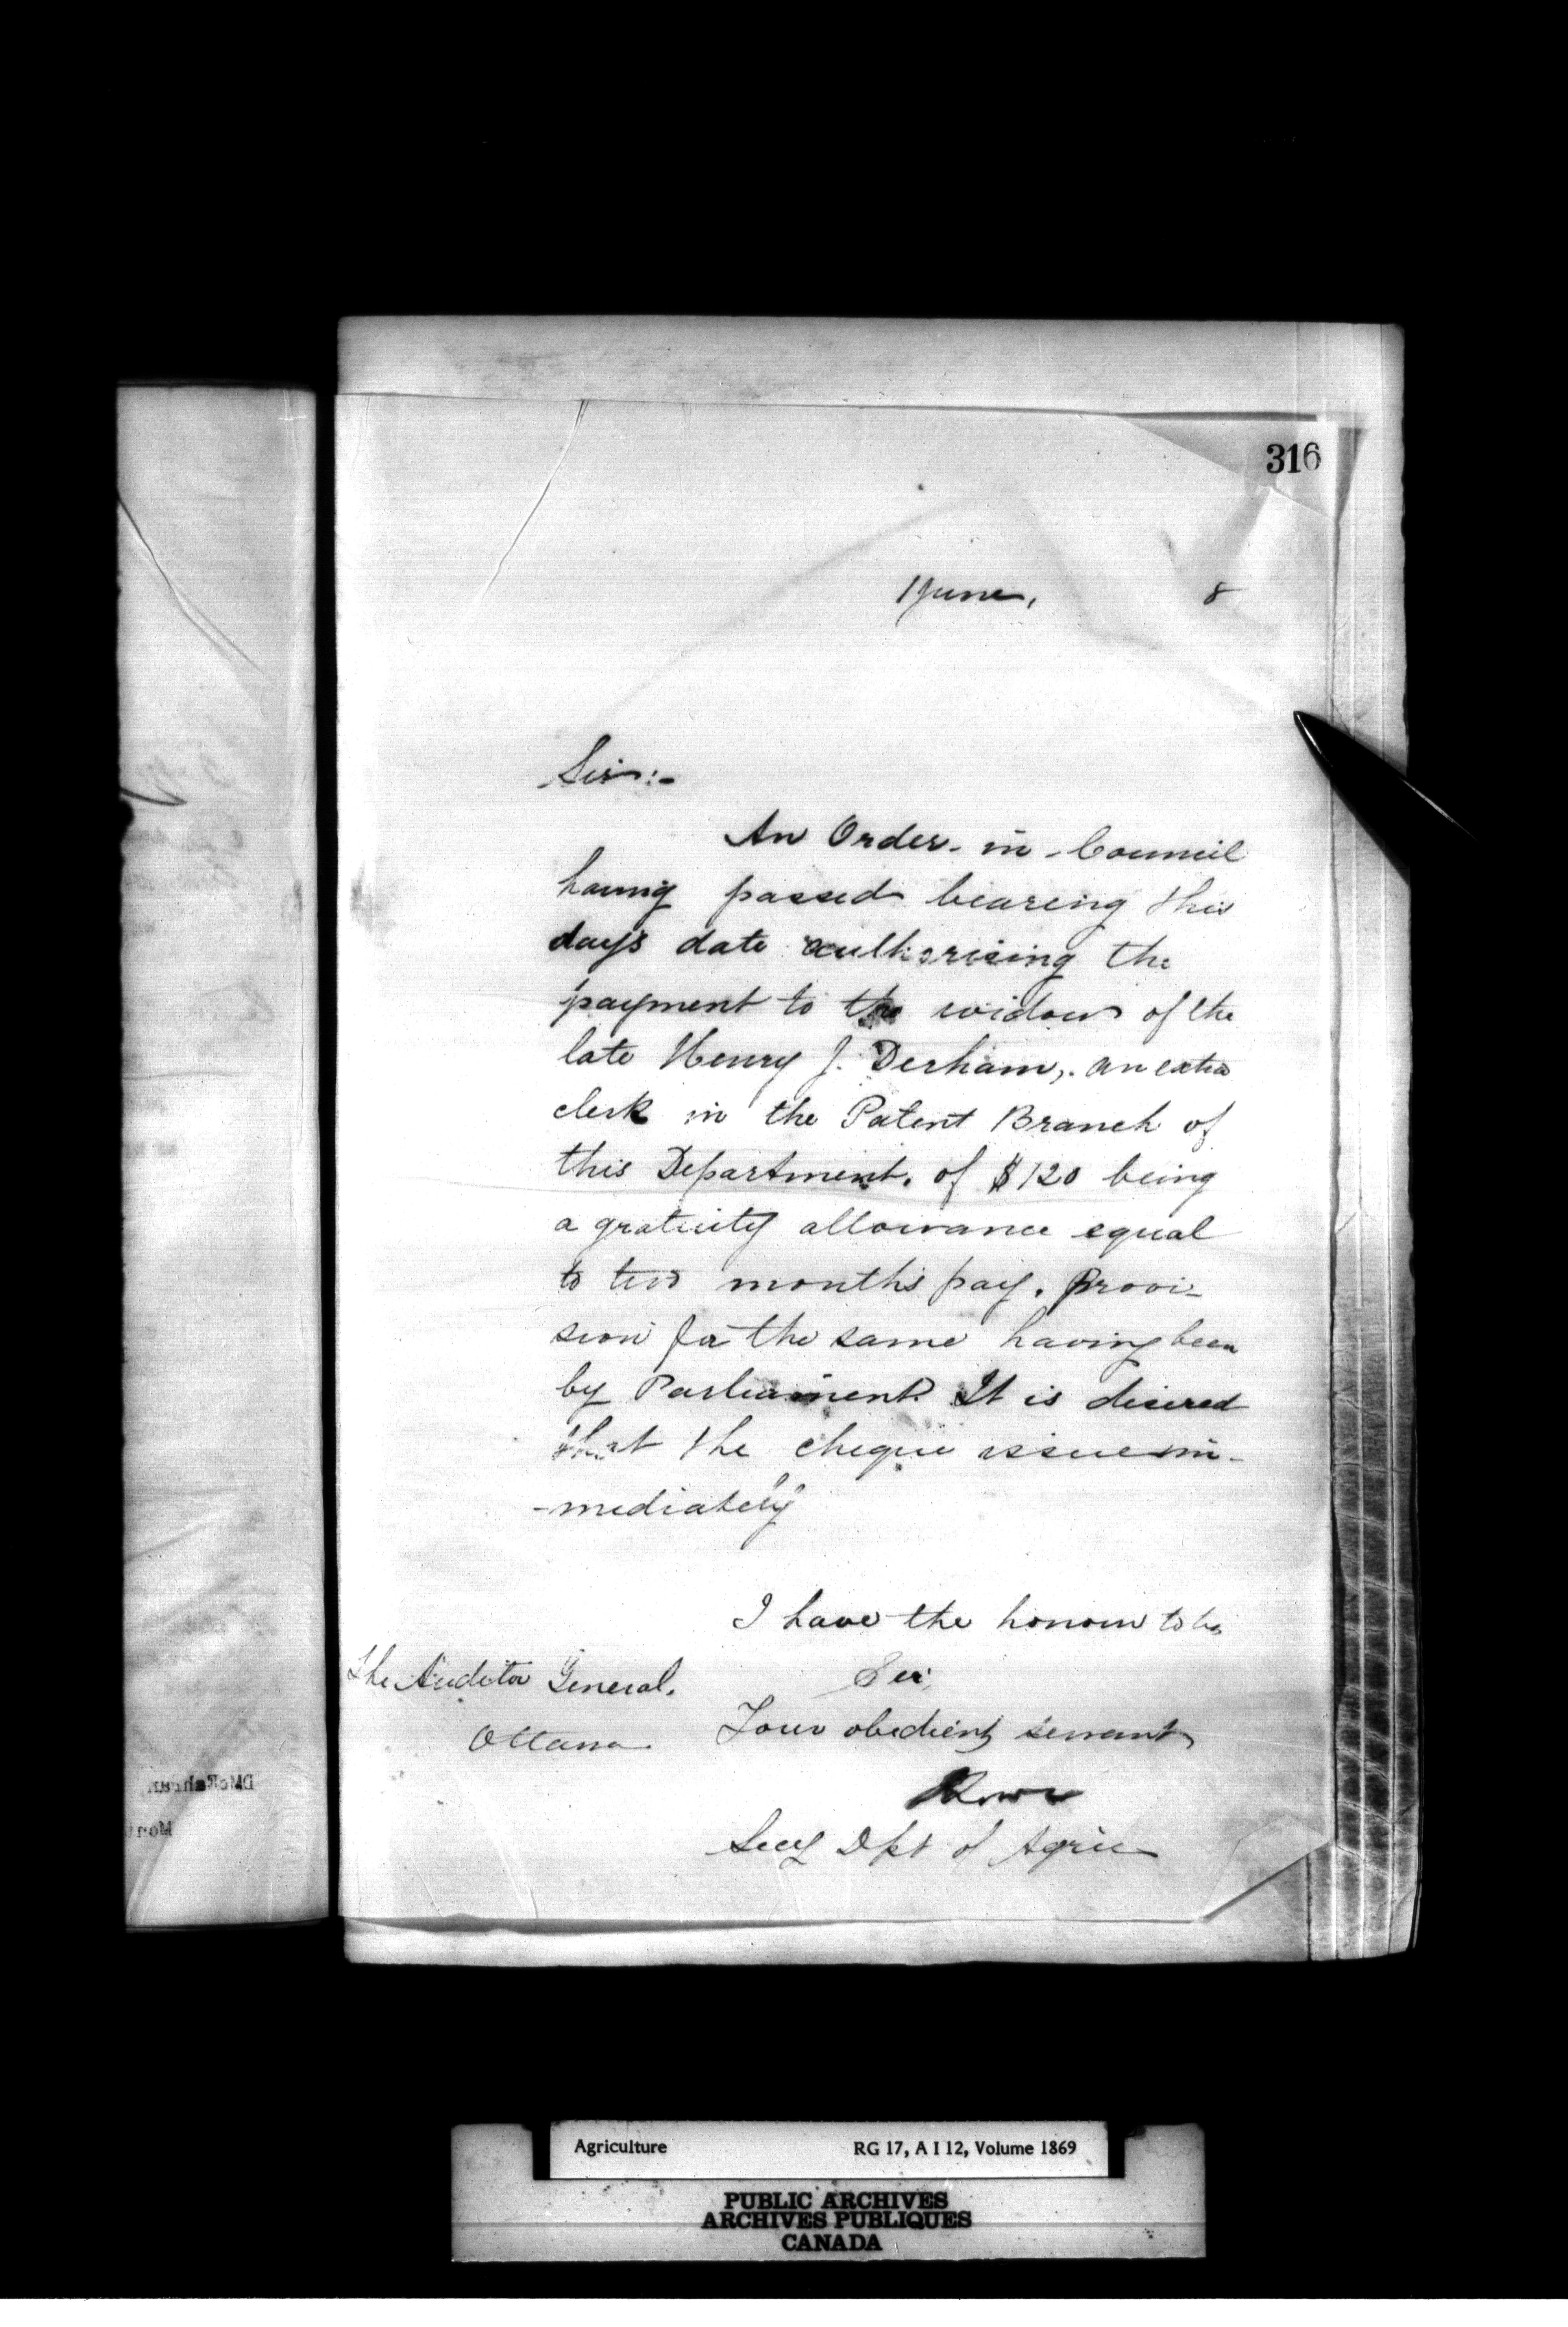 316
1 June, 8
Sir:-
An Order-in-Council
having passed bearing this
days date authorising the
payment to the widow of the
late Henry J. Derham, an extra
clerk in the Patent Branch of
this Department, of $120 being
a gratuity allowance equal
to two months pay. Provi-
sion for the same having been
by Parliament It is desired
that the cheque issue im-
-mediately
I have the honour to be
Sir,
The Auditor General,
Your obedient servant
Ottawa
Secy Dpt of Agric
Agriculture RG 17, A I 12, Volume 1869
PUBLIC ARCHIVES
ARCHIVES PUBLIQUES
CANADA